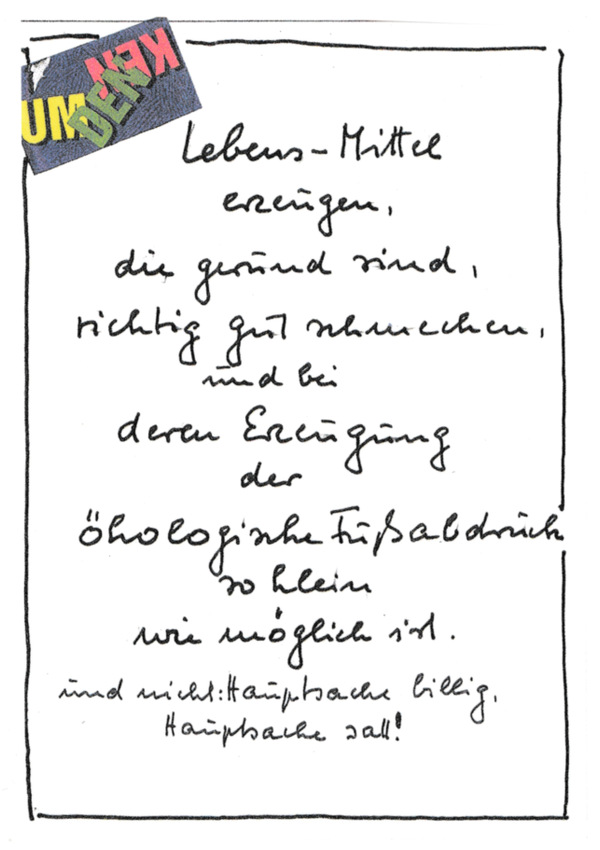 UMDENKEN
Lebens-Mittel
erzeugen,
die gesund sind,
richtig gut schmecken,
und bei
deren Erzeugung
der
ökologische Fußabdruck
so klein
wie möglich ist.
und nicht: Hauptsache billig,
Hauptsache satt!